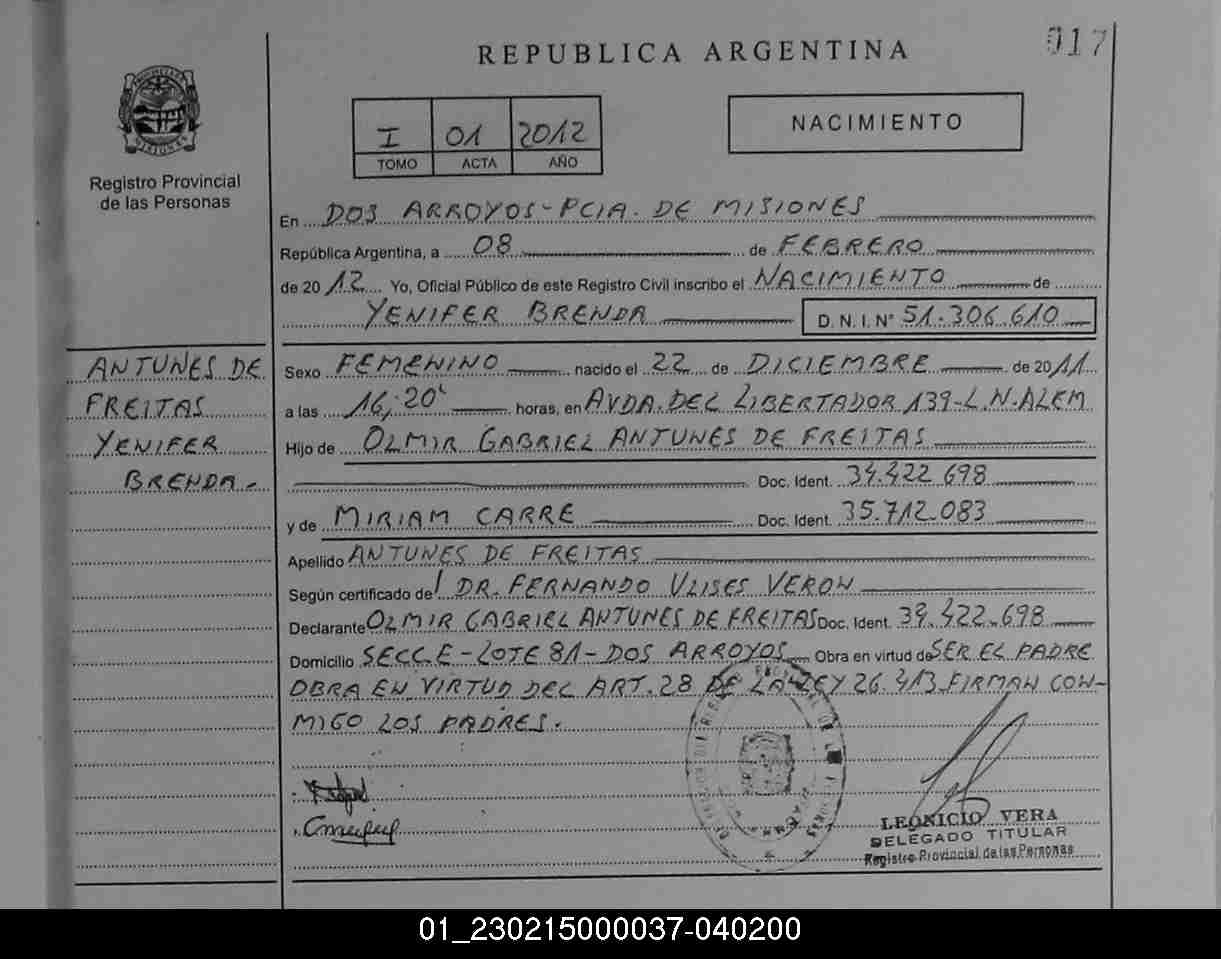 017
REPUBLICA ARGENTINA
I 01 2012
TOMO ACTA AÑO
NACIMIENTO
PROVINCIA DE MISIONES
Registro Provincial
de las Personas
En DOS ARROYOS-PCIA. DE MISIONES
República Argentina, a 08 de FEBRERO
de 2012 Yo, Oficial Público de este Registro Civil inscribo el NACIMIENTO de
YENIFER BRENDA D.N.I. N° 51.306.610
ANTUNES DE
FREITAS
YENIFER
BRENDA.-
Sexo FEMENINO nacido el 22 de DICIEMBRE de 2011
a las 16,20 horas, en AVDA. DEL LIBERTADOR 139-L.N.ALEM
Hijo de OLMIR GABRIEL ANTUNES DE FREITAS
Doc. Ident. 34.422.698
y de MIRIAM CARRE Doc. Ident. 35.712.083
Apellido ANTUNES DE FREITAS
Según certificado de DR. FERNANDO ULISES VERON
Declarante OLMIR GABRIEL ANTUNES DE FREITAS Doc. Ident. 34.422.698
Domicilio SECC.E-LOTE 81-DOS ARROYOS Obra en virtud de SER EL PADRE
OBRA EN VIRTUD DEL ART. 28 DE LA LEY 26.413 FIRMAN CON-
MIGO LOS PADRES.
LEONICIO VERA
DELEGADO TITULAR
Registro Provincial de las Personas
01_230215000037-040200